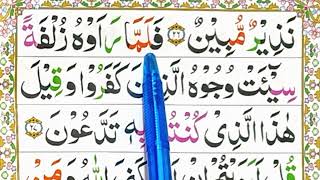 نَذِيْرٌ مُّبِيْنٌ ﴿۲۶﴾ فَلَمَّا رَاَوْهُ زُلْفَةً
سِيْٓـَٔتْ وُجُوْهُ الَّذِيْنَ كَفَرُوْا وَقِيْلَ
هٰذَا الَّذِيْ كُنْتُمْ بِهٖ تَدَّعُوْنَ ﴿۲۷﴾